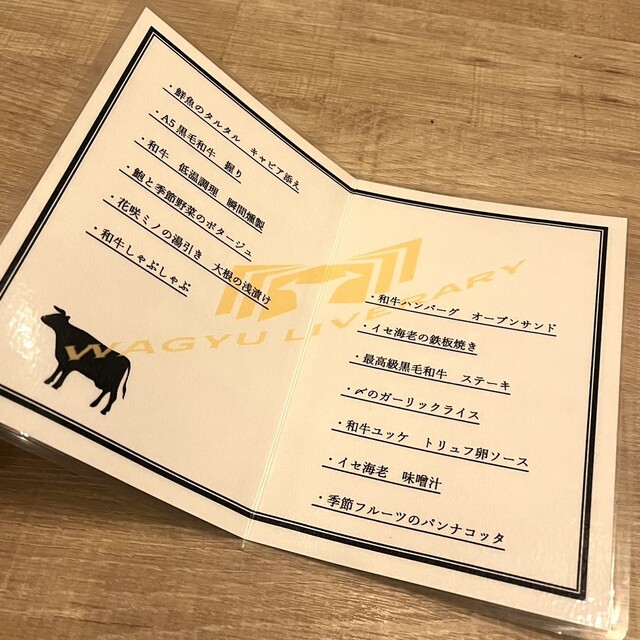 ・鮮魚のタルタル　キャビア添え
・A5黒毛和牛　握り
・和牛　低温調理　瞬間燻製
・鮑と季節野菜のポタージュ
・花咲ミノの湯引き　大根の浅漬け
・和牛しゃぶしゃぶ
WAGYU LIVERARY
・和牛ハンバーグ　オープンサンド
・イセ海老の鉄板焼き
・最高級黒毛和牛　ステーキ
・〆のガーリックライス
・和牛ユッケ　トリュフ卵ソース
・イセ海老　味噌汁
・季節フルーツのパンナコッタ